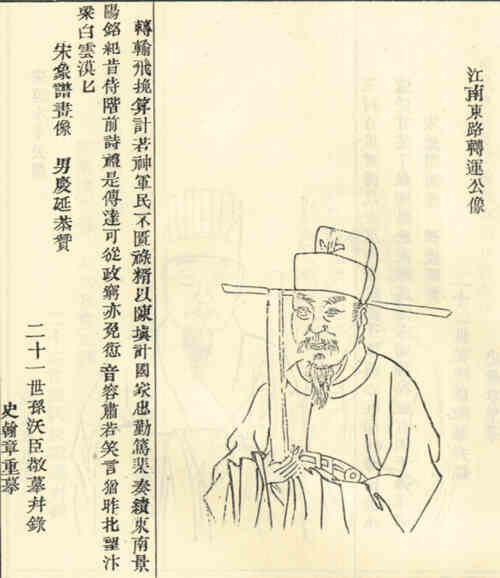 江南東路轉運公像
轉輸飛挽算計若神軍民不匱祿糈以陳填計國家忠勤篤棐奏績東南景
陽銘祀昔侍階前詩禮是傳達可從政窮亦免愆音容肅若笑言猶昨北望汴
梁白雲漠匕
宋象譜畫像 男慶延恭贊
二十一世孫沃臣敬摹幷錄
史翰章重摹